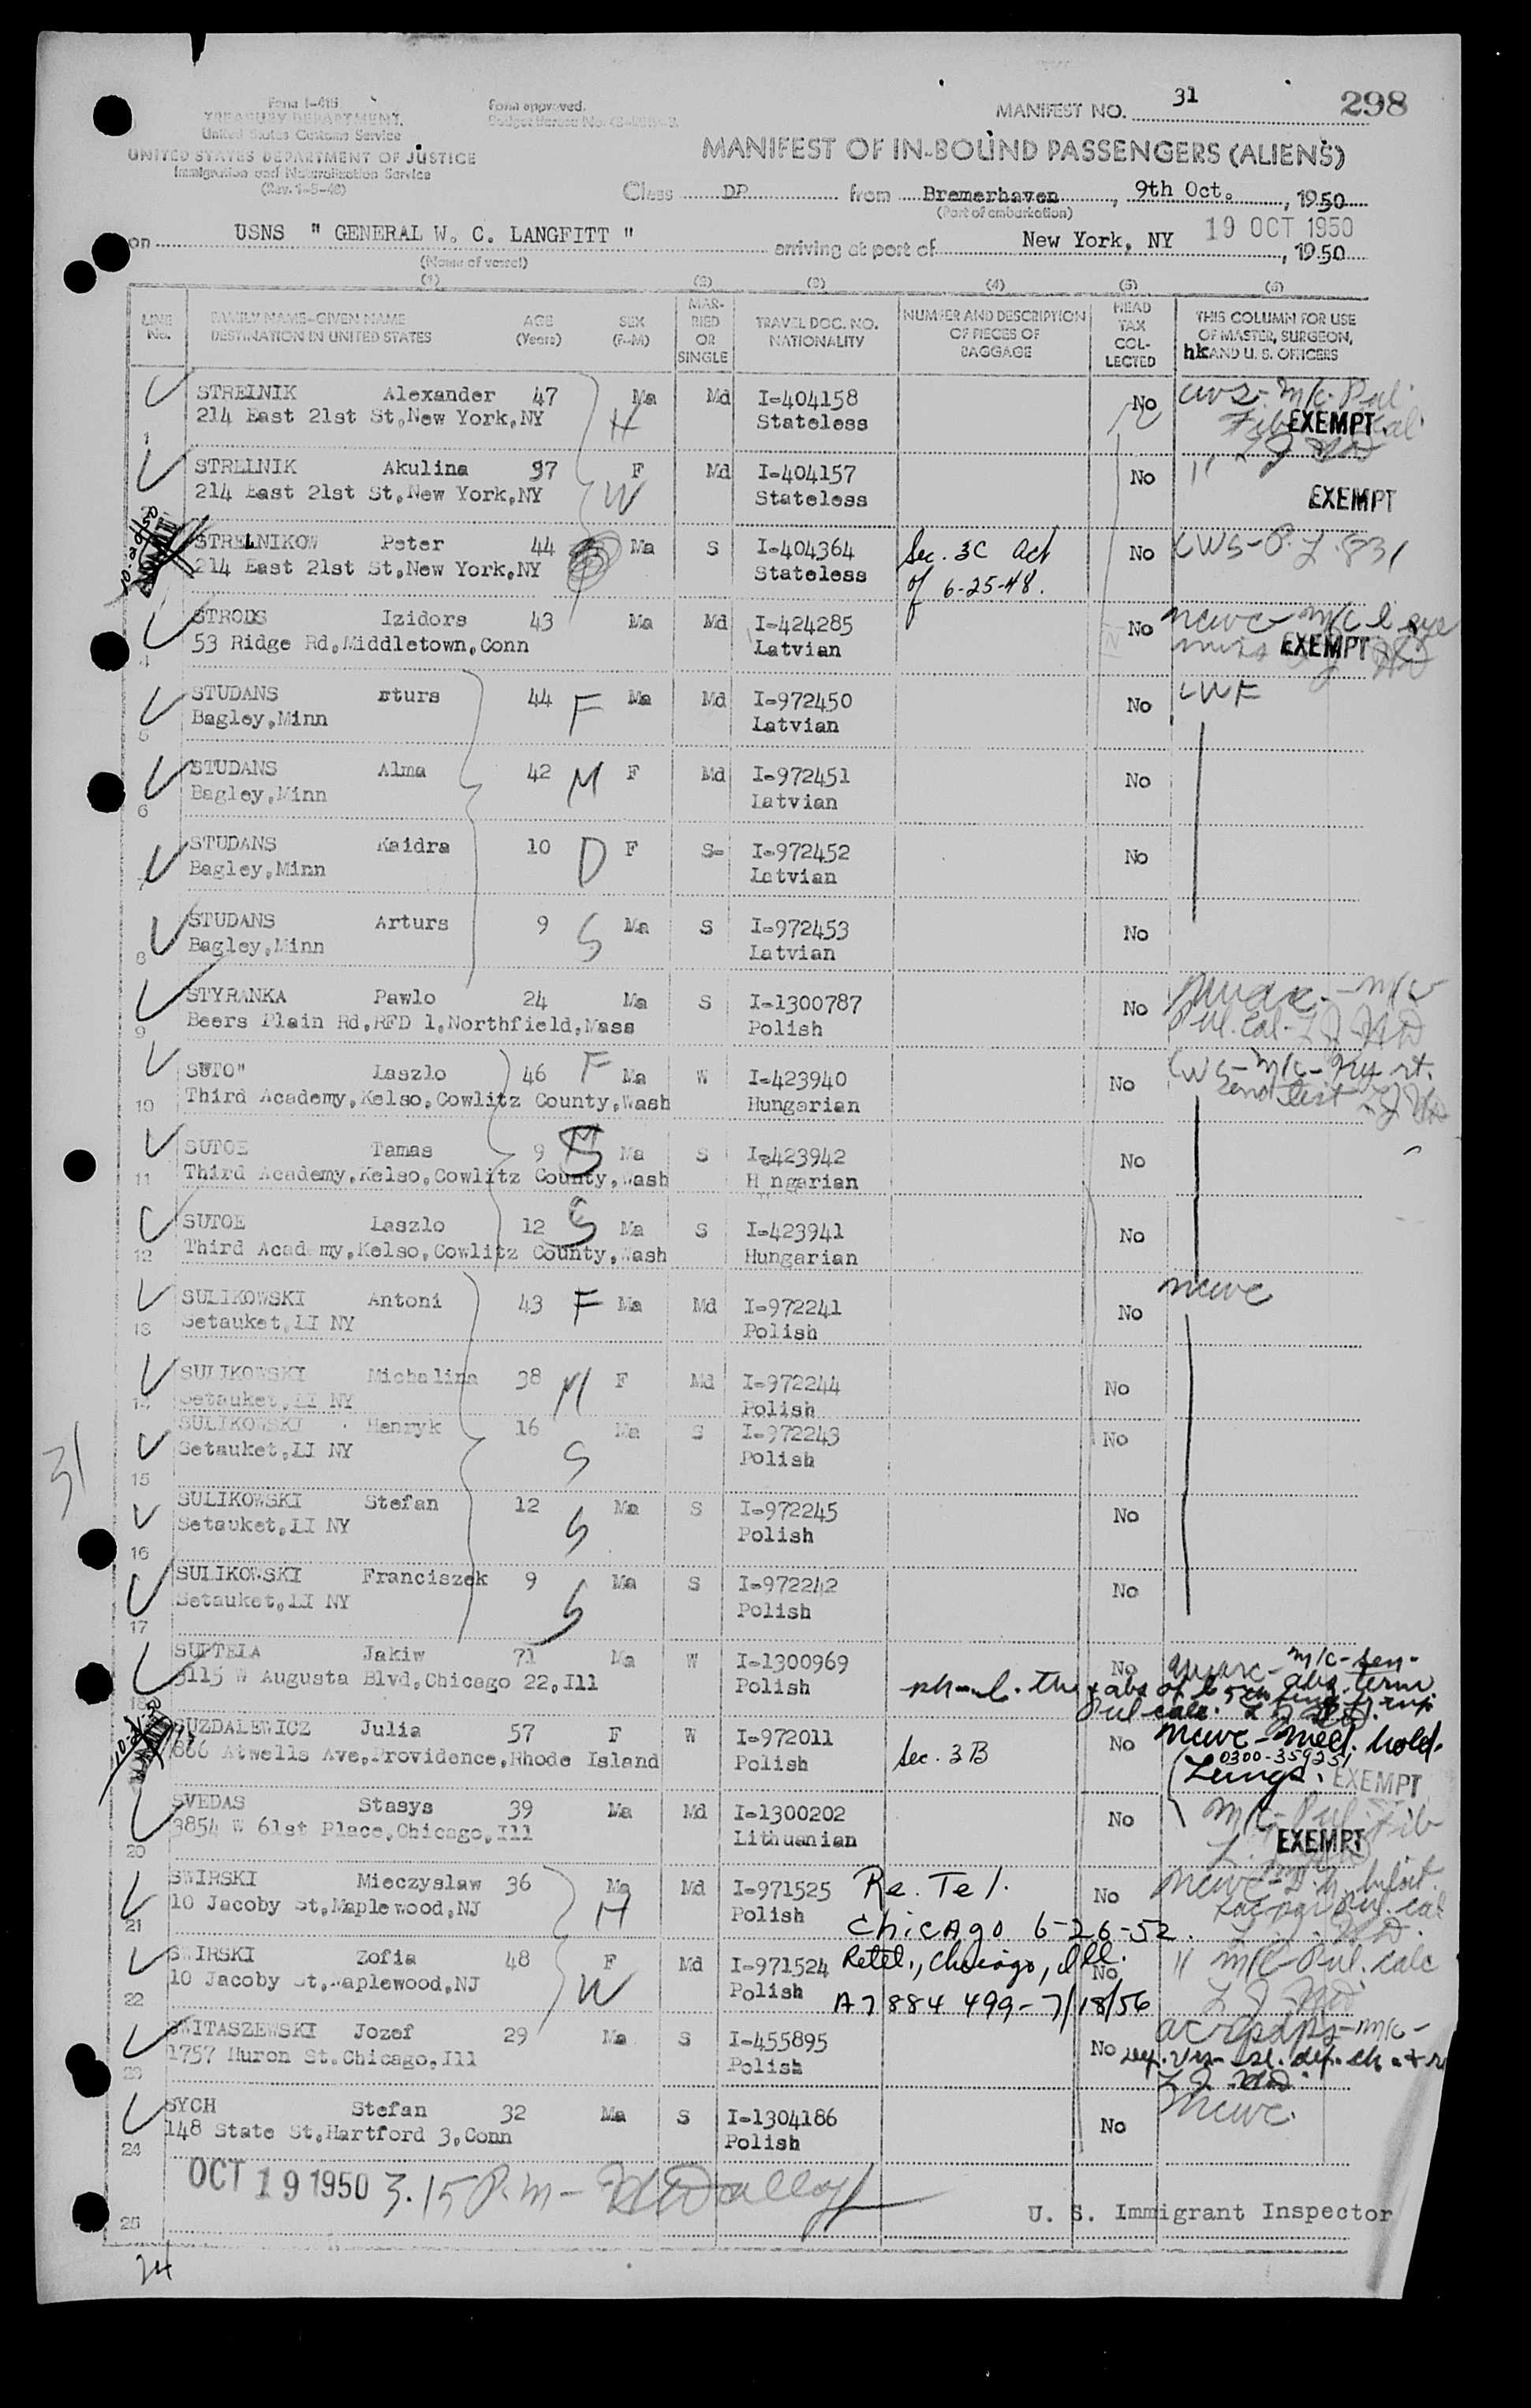 Form I-415
TREASURY DEPARTMENT
United States Customs Service
UNITED STATES DEPARTMENT OF JUSTICE
Immigration and Naturalization Service
(Rev. 1-5-48)
Form approved.
Budget Bureau No.
MANIFEST NO. 31
298
MANIFEST OF IN-BOUND PASSENGERS (ALIENS)
Class DP from Bremerhaven, 9th Oct., 1950
(Port of embarkation)
19 OCT 1950
on USNS " GENERAL W. C. LANGFITT " arriving at port of New York, NY, 1950
(Name of vessel)
(1) (2) (3) (4) (5) (6)
LINE No.
FAMILY NAME-GIVEN NAME
DESTINATION IN UNITED STATES
AGE (Years)
SEX (F-M)
MARRIED OR SINGLE
TRAVEL DOC. NO.
NATIONALITY
NUMBER AND DESCRIPTION OF PIECES OF BAGGAGE
HEAD TAX COLLECTED
THIS COLUMN FOR USE OF MASTER, SURGEON, AND U. S. OFFICERS
hk
1 STRELNIK Alexander 47 H Ma Md I-404158 No CWS - M/C - Pul
214 East 21st St,New York,NY Stateless EXEMPT
STRELNIK Akulina 37 F Md I-404157 No "
214 East 21st St,New York,NY W Stateless EXEMPT
STRELNIKOW Peter 44 Ma S I-404364 Sec. 3C Act No CWS-P.L. 831
214 East 21st St,New York,NY Stateless of 6-25-48.
4 STRODS Izidors 43 Ma Md I-424285 No NCWC - M/C l eye
53 Ridge Rd,Middletown,Conn Latvian EXEMPT
5 STUDANS rturs 44 F Ma Md I-972450 No LWF
Bagley,Minn Latvian
6 STUDANS Alma 42 M F Md I-972451 No
Bagley,Minn Latvian
7 STUDANS Kaidra 10 D F S- I-972452 No
Bagley,Minn Latvian
8 STUDANS Arturs 9 S Ma S I-972453 No
Bagley,Minn Latvian
9 STYRANKA Pawlo 24 Ma S I-1300787 No - M/C
Beers Plain Rd,RFD 1,Northfield,Mass Polish Pul. Cal.
10 SUTO" Laszlo 46 F Ma W I-423940 No CWS - M/C -
Third Academy,Kelso,Cowlitz County,Wash Hungarian
11 SUTOE Tamas 9 S Ma S I-423942 No
Third Academy,Kelso,Cowlitz County,Wash H ngarian
12 SUTOE Laszlo 12 S Ma S I-423941 No
Third Academy,Kelso,Cowlitz County,Wash Hungarian
13 SULIKOWSKI Antoni 43 F Ma Md I-972241 No NCWC
Setauket,LI NY Polish
14 SULIKOWSKI Michalina 38 M F Md I-972244 No
Setauket,LI NY Polish
SULIKOWSKI Henryk 16 Ma S I-972243 No
15 Setauket,LI NY S Polish
SULIKOWSKI Stefan 12 Ma S I-972245 No
16 Setauket,LI NY S Polish
SULIKOWSKI Franciszek 9 Ma S I-972242 No
17 Setauket,LI NY S Polish
SUPTELA Jakiw 71 Ma W I-1300969 No - M/C - Sen-
18 3115 W Augusta Blvd,Chicago 22,Ill Polish
SUZDALEWICZ Julia 57 F W I-972011 No NCWC - Med. hold.
866 Atwells Ave,Providence,Rhode Island Polish Sec. 3B 0300-359251
Lungs. EXEMPT
SVEDAS Stasys 39 Ma Md I-1300202 No M/C - Pul. Fib
20 3854 W 61st Place,Chicago,Ill Lithuanian EXEMPT
SWIRSKI Mieczyslaw 36 Ma Md I-971525 Re. Tel. No NCWC
21 10 Jacoby St,Maplewood,NJ H Polish Chicago 6-26-52.
SWIRSKI Zofia 48 F Md I-971524 Retel., Chicago, Ill. No " M/C Pul. Calc
22 10 Jacoby St,Maplewood,NJ W Polish A7 884 499-7/18/56
SWITASZEWSKI Jozef 29 Ma S I-455895 No - M/C -
23 1757 Huron St.Chicago,Ill Polish
SYCH Stefan 32 Ma S I-1304186 No NCWC.
24 148 State St,Hartford 3,Conn Polish
OCT 19 1950 3.15 P.m -
25 U. S. Immigrant Inspector
31
24